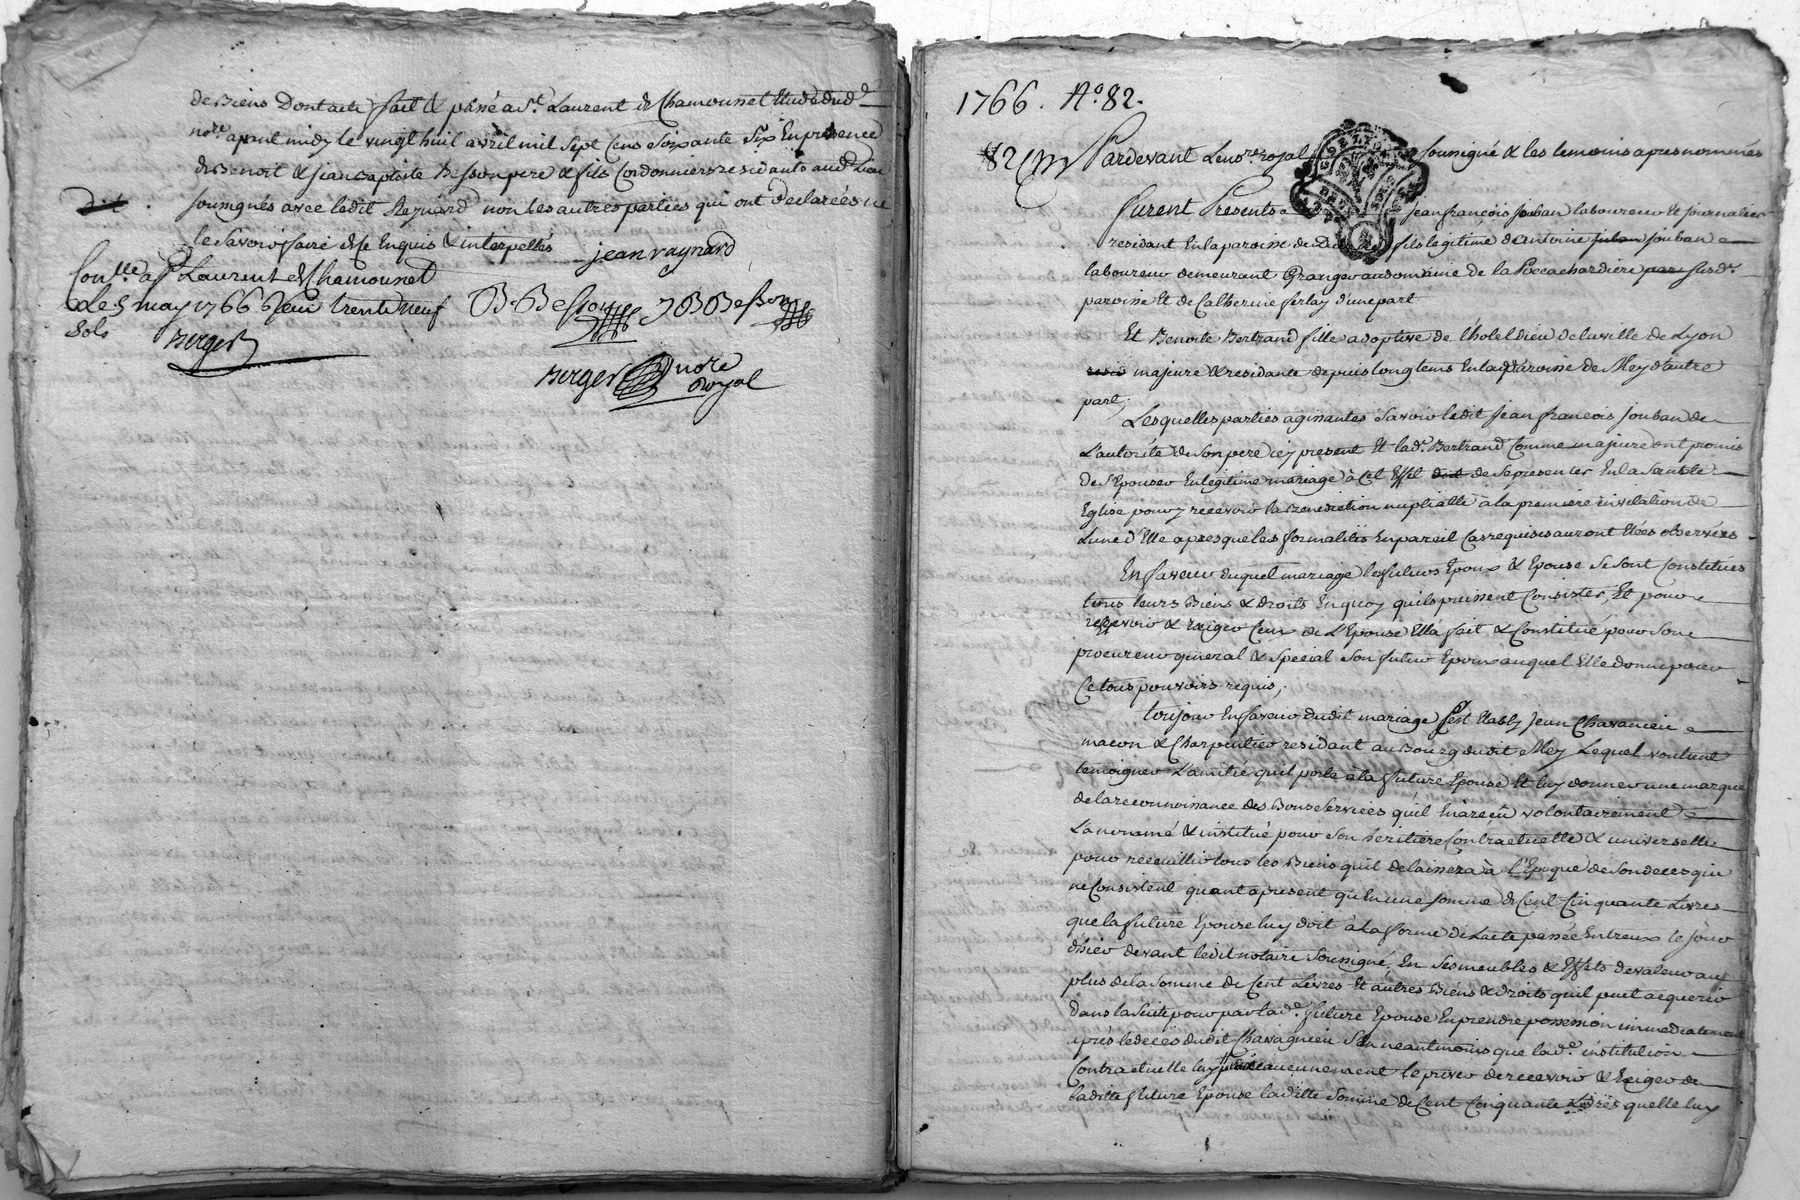 de Biens Dont acte fait & passé a St. Laurent de Chamousset Etude dud.
nore. apant midy le vingt huit avril mil sept Cens Soixante Six En presence
de Benoit & Jean Baptiste Besson pere & fils Cordonniers residants aud. Lieu
soussignés avec ledit Reynard non les autres parties qui ont declarées ne
le Savoir faire de ce Enquis & interpellés
jean raynard
Con.lle a St Laurent de Chamousset
Le 5 may 1766 Reçu trente neuf
Sols
Berger
B. Besson J B Besson
Berger nore
Royal
1766. No. 82.
82 Cm Pardevant Le no.re royal soussigné & les temoins apres nommés
furent Presents jean françois jouban laboureur & journalier
residant En la paroisse de fils legitime d'antoine juban jouban
laboureur demeurant Granger au domaine de la Poccachardiere par susd.
paroisse Et de Catherine ferlay d'une part
Et Benoite Bertrand fille adoptive de l'hotel dieu de la ville de Lyon
majeure & residante depuis longtems En lad. paroisse de Meys d'autre
part;
Lesquelles parties agissantes Savoir ledit jean françois jouban de
L'autorité de Son pere icy present Et lad. Bertrand Comme majeure ont promis
de S'Epouser En legitime mariage à Cet Effet de Se presenter En la Sainte
Eglise pour y recevoir la Benediction nuptialle a la premiere invitation de
L'une d'Elle apres que les formalités En pareil Cas requises auront Etées observées
En faveur duquel mariage les futurs Epoux & Epouse Se Sont Constitués
tous leurs Biens & droits En quoy qu'ils puissent Consister, Et pour
recevoir & Exiger Ceux de L'Epouse Ella fait & Constitué pour Son
procureur general & Special Son futur Epoux auquel Elle donne pour
Ce tous pouvoirs requis;
toujour En faveur dudit mariage S'est Etably Jean Chavancieu
macon & Charpentier residant au Bourg dudit Mey Lequel voulant
temoigner L'amitié qu'il porte à la future Epouse Et luy donner une marque
de la reconnoissance des Bons Services qu'il En a reçu volontairement
La nommé & institué pour Son heritiere Contractuelle & universelle
pour receuillir tous les Biens qu'il delaissera à l'Epoque de Son deces qui
ne Consistent quant apresent qu'En une Somme de Cent Cinquante Livres
que la future Epouse luy doit à La forme de L'acte passé Entreux le jour
d'hier devant ledit notaire Soussigné, En Ses meubles & Effets de valeur au
plus de la Somme de Cent Livres Et autres Biens & droits qu'il peut acquerir
dans la Suite pour par lad. future Epouse En prendre possession immediatement
après le deces dudit Chavagnieu S'En neantmoins que lad. institution
Contractuelle luy puisse aucunement le priver de recevoir & Exiger de
laditte future Epouse laditte Somme de Cent Cinquante Livres quelle luy